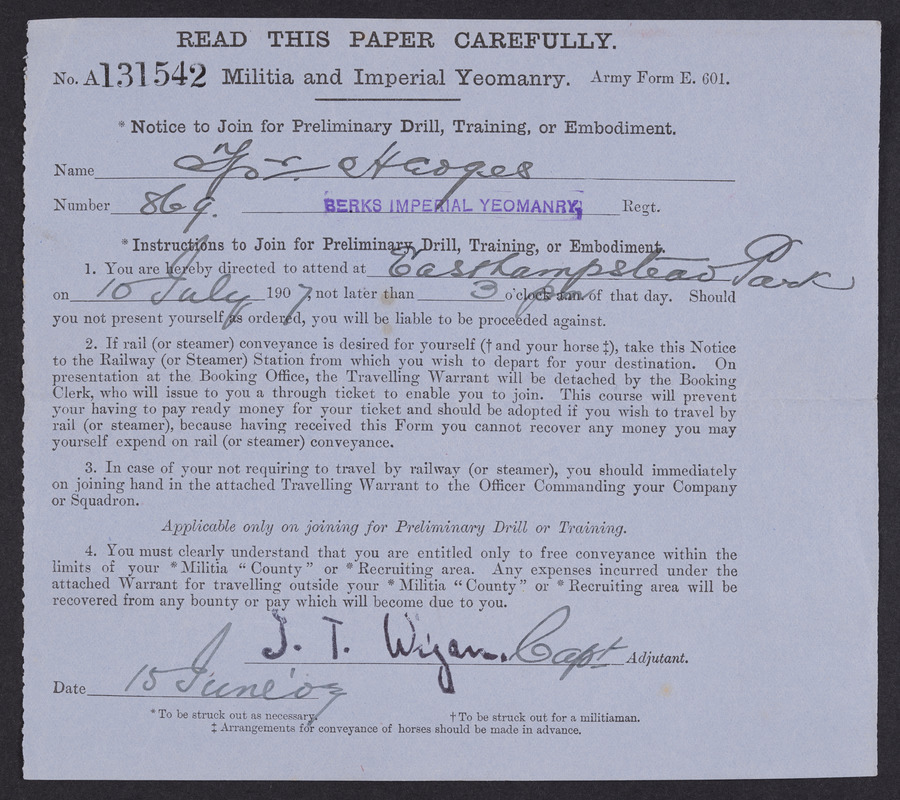 READ THIS PAPER CAREFULLY.
No. A131542 Militia and Imperial Yeomanry. Army Form E. 601.
* Notice to Join for Preliminary Drill, Training, or Embodiment.
Name Tpr. Hedges
Number 869. BERKS IMPERIAL YEOMANRY, Regt.
* Instructions to Join for Preliminary Drill, Training, or Embodiment.
1. You are hereby directed to attend at Easthampstead Park
on 10 July 1907, not later than 3 o'clock pm of that day. Should
you not present yourself as ordered, you will be liable to be proceeded against.
2. If rail (or steamer) conveyance is desired for yourself († and your horse ‡), take this Notice
to the Railway (or Steamer) Station from which you wish to depart for your destination. On
presentation at the Booking Office, the Travelling Warrant will be detached by the Booking
Clerk, who will issue to you a through ticket to enable you to join. This course will prevent
your having to pay ready money for your ticket and should be adopted if you wish to travel by
rail (or steamer), because having received this Form you cannot recover any money you may
yourself expend on rail (or steamer) conveyance.
3. In case of your not requiring to travel by railway (or steamer), you should immediately
on joining hand in the attached Travelling Warrant to the Officer Commanding your Company
or Squadron.
Applicable only on joining for Preliminary Drill or Training.
4. You must clearly understand that you are entitled only to free conveyance within the
limits of your * Militia "County" or * Recruiting area. Any expenses incurred under the
attached Warrant for travelling outside your * Militia "County" or * Recruiting area will be
recovered from any bounty or pay which will become due to you.
J. T. Wigan. Capt Adjutant.
Date 15 June '07
* To be struck out as necessary. † To be struck out for a militiaman.
‡ Arrangements for conveyance of horses should be made in advance.